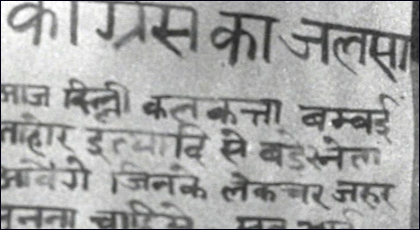 कांग्रेस का जलसा
आज दिल्ली कलकत्ता बम्बई
लाहोर इत्यादि से बड़े२ नेता
आवेंगे जिनके लेकचर जरुर
सुनना चाहिये